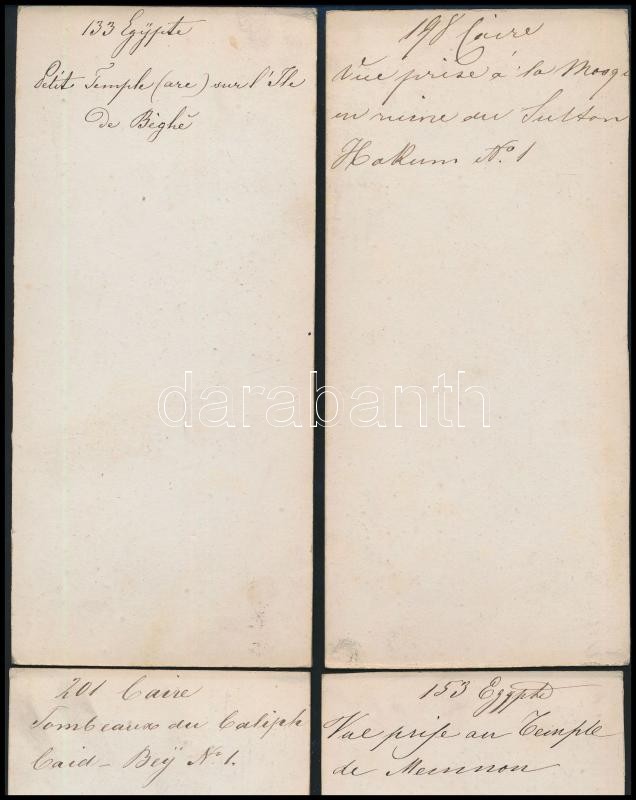 133 Egÿpte
Petit Temple (arc) sur l'Ile
de Béghé
198 Caire
Vue prise à la Mosq
en ruine du Sultan
Hakum No. 1
darabanth
201 Caire
Tombeaux du Caliph
Caid-Beÿ No. 1.
153 Egypte
Vue prise au Temple
de Memnon